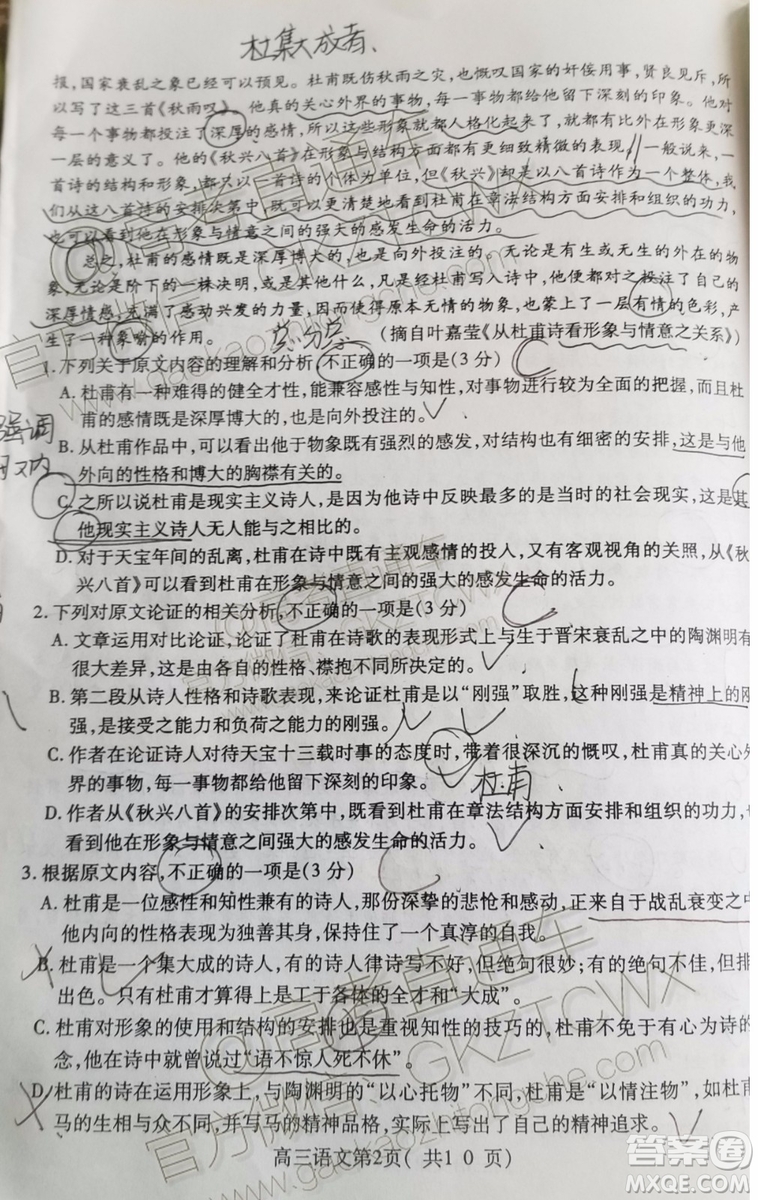 杜集大成者、
报,国家衰乱之象已经可以预见。杜甫既伤秋雨之灾,也慨叹国家的奸佞用事,贤良见斥,所
以写了这三首《秋雨叹》。他真的关心外界的事物,每一事物都给他留下深刻的印象。他对
每一个事物都投注了深厚的感情,所以这些形象就都人格化起来了,就都有比外在形象更深
一层的意义了。他的《秋兴八首》在形象与结构方面都有更细致精微的表现。一般说来,一
首诗的结构和形象,都只以一首诗的个体为单位,但《秋兴》却是以八首诗作为一个整体,我
们从这八首诗的安排次第中,既可以更清楚地看到杜甫在章法结构方面安排和组织的功力,
也可以看到他在形象与情意之间的强大的感发生命的活力。
总之,杜甫的感情是深厚博大的,也是向外投注的。无论是有生或无生的外在的形
象,无论是阶下的一株决明,或是战场上的一匹老马,凡是经杜甫写入诗中,就都对之投注了自己的
深厚情感,充满了感动兴发的力量,因而使得原本无情的物象,也蒙上了一层有情的色彩,产
生了一种象喻的作用。
(摘自叶嘉莹《从杜甫诗看形象与情意之关系》)
1. 下列关于原文内容的理解和分析,不正确的一项是(3 分)
A. 杜甫有一种难得的健全才性,能兼容感性与知性,对事物进行较为全面的把握,而且杜
甫的感情既是深厚博大的,也是向外投注的。
强调
B. 从杜甫作品中,可以看出他于物象既有强烈的感发,对结构也有细密的安排,这是与他
外向的性格和博大的胸襟有关的。
C. 之所以说杜甫是现实主义诗人,是因为他诗中反映最多的是当时的社会现实,这是其
他现实主义诗人无人能与之相比的。
D. 对于天宝年间的乱离,杜甫在诗中既有主观感情的投入,又有客观视角的关照,从《秋
兴八首》可以看到杜甫在形象与情意之间的强大的感发生命的活力。
2. 下列对原文论证的相关分析,不正确的一项是(3 分)
A. 文章运用对比论证,论证了杜甫在诗歌的表现形式上与生于晋宋衰乱之中的陶渊明有
很大差异,这是由各自的性格、襟抱不同所决定的。
B. 第二段从诗人性格和诗歌表现,来论证杜甫是以“刚强”取胜,这种刚强是精神上的刚
强,是接受之能力和负荷之能力的刚强。
C. 作者在论证诗人对待天宝十三载时事的态度时,带着很深沉的慨叹,杜甫真的关心外
界的事物,每一事物都给他留下深刻的印象。
杜甫
D. 作者从《秋兴八首》的安排次第中,既看到杜甫在章法结构方面安排和组织的功力,也
看到他在形象与情意之间强大的感发生命的活力。
3. 根据原文内容,不正确的一项是(3 分)
A. 杜甫是一位感性和知性兼有的诗人,那份深挚的悲怆和感动,正来自于战乱衰变之中
他内向的性格表现为独善其身,回归到一个真淳的自我。
B. 杜甫是一个集大成的诗人,有的诗人律诗写不好,但绝句很妙;有的绝句不佳,但古体
出色。只有杜甫才算得上是工于各体的全才和“大成”。
C. 杜甫对形象的使用和结构的安排也是重视知性的技巧的,杜甫不免于有心为诗的
念,他在诗中就曾说过“语不惊人死不休”。
D. 杜甫的诗在运用形象上,与陶渊明的“以心托物”不同,杜甫是“以情注物”,如杜甫
马的生相与众不同,并写马的精神品格,实际上写出了自己的精神追求。
高三语文第2页( 共1 0 页)
答案圈
MXQE.COM